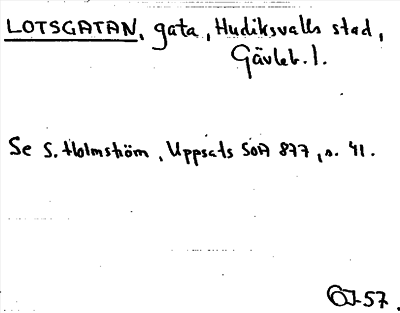 LOTSGATAN, gata, Hudiksvalls stad,
Gävleb. l.
Se S. Holmström, Uppsats SOA 877, s. 41.
57.